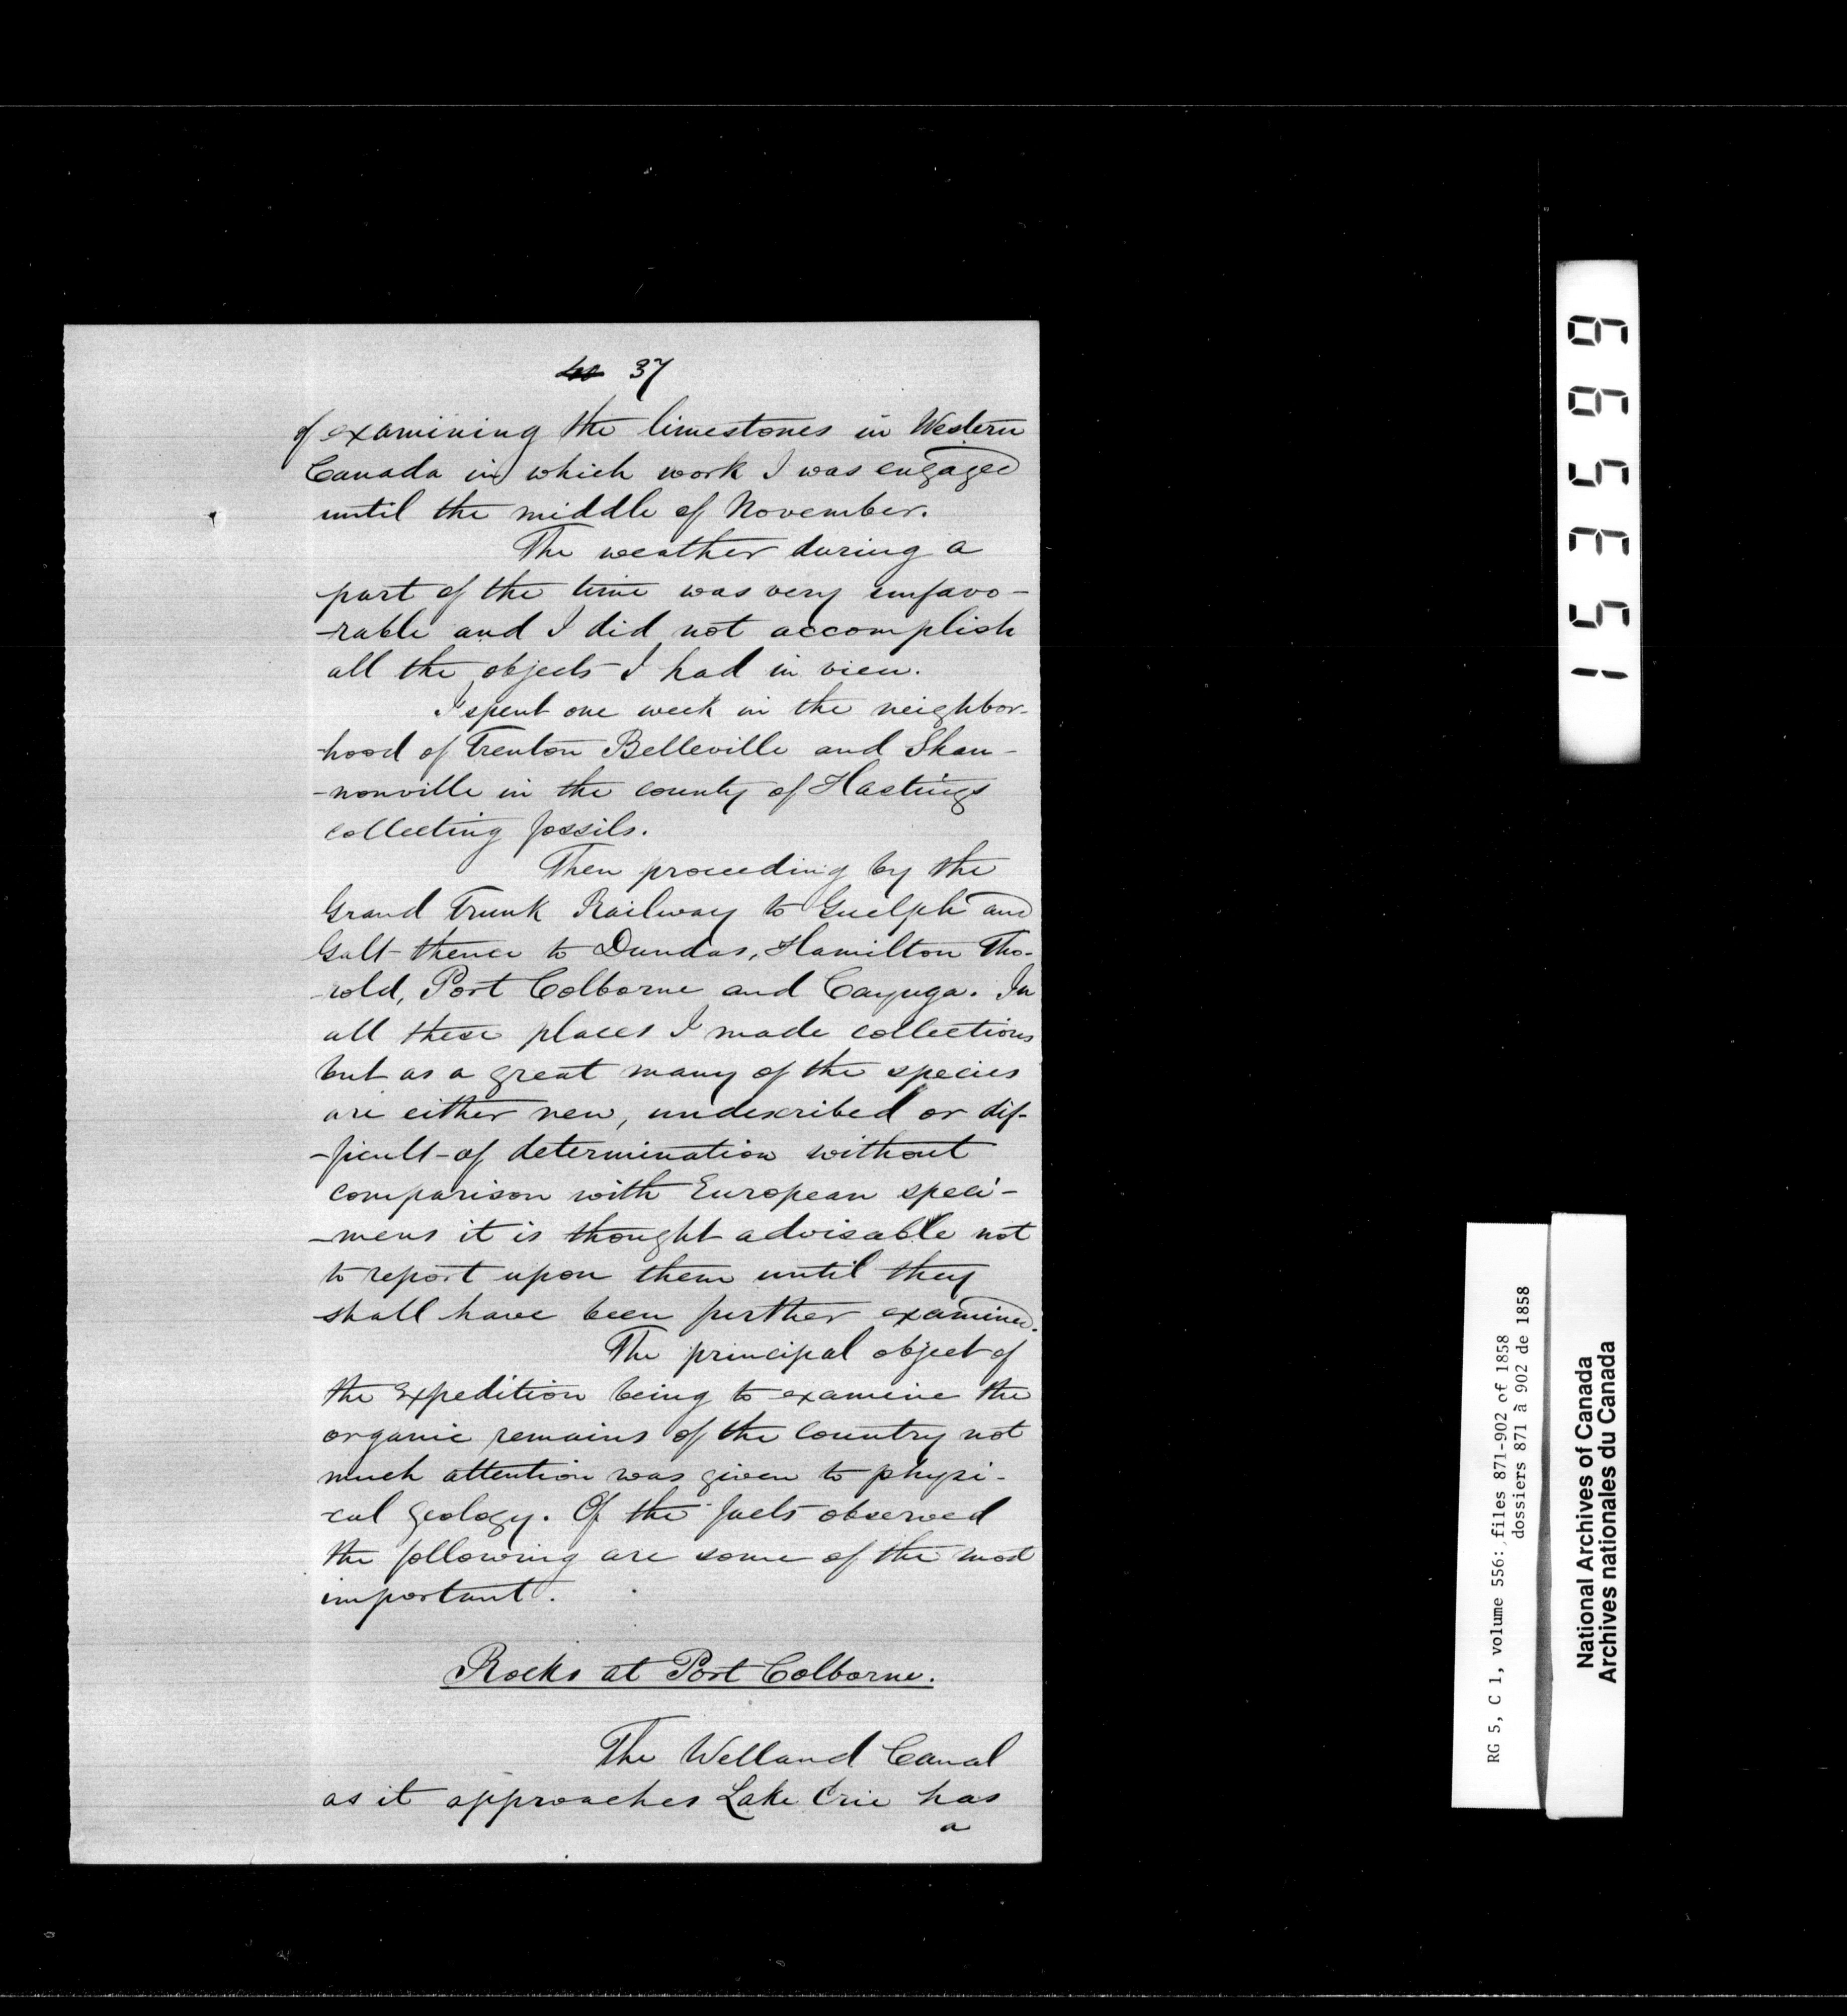 40 37
of examining the limestones in Western
Canada in which work I was engaged
until the middle of November.
The weather during a
part of the time was very unfavo-
-rable and I did not accomplish
all the objects I had in view.
I spent one week in the neighbor-
-hood of Trenton Belleville and Shan-
-nonville in the county of Hastings
collecting fossils.
Then proceeding by the
Grand Trunk Railway to Guelph and
Galt thence to Dundas, Hamilton Tho-
-rold, Port Colborne and Cayuga. In
all these places I made collections
but as a great many of the species
are either new, undescribed or dif-
-ficult of determination without
comparison with European speci-
-mens it is thought advisable not
to report upon them until they
shall have been further examined.
The principal object of
the Expedition being to examine the
organic remains of the Country not
much attention was given to physi-
cal geology. Of the facts observed
the following are some of the most
important.
Rocks at Port Colborne.
The Welland Canal
as it approaches Lake Erie has
a
153599
RG 5, C 1, volume 556: files 871-902 of 1858
dossiers 871 à 902 de 1858
National Archives of Canada
Archives nationales du Canada